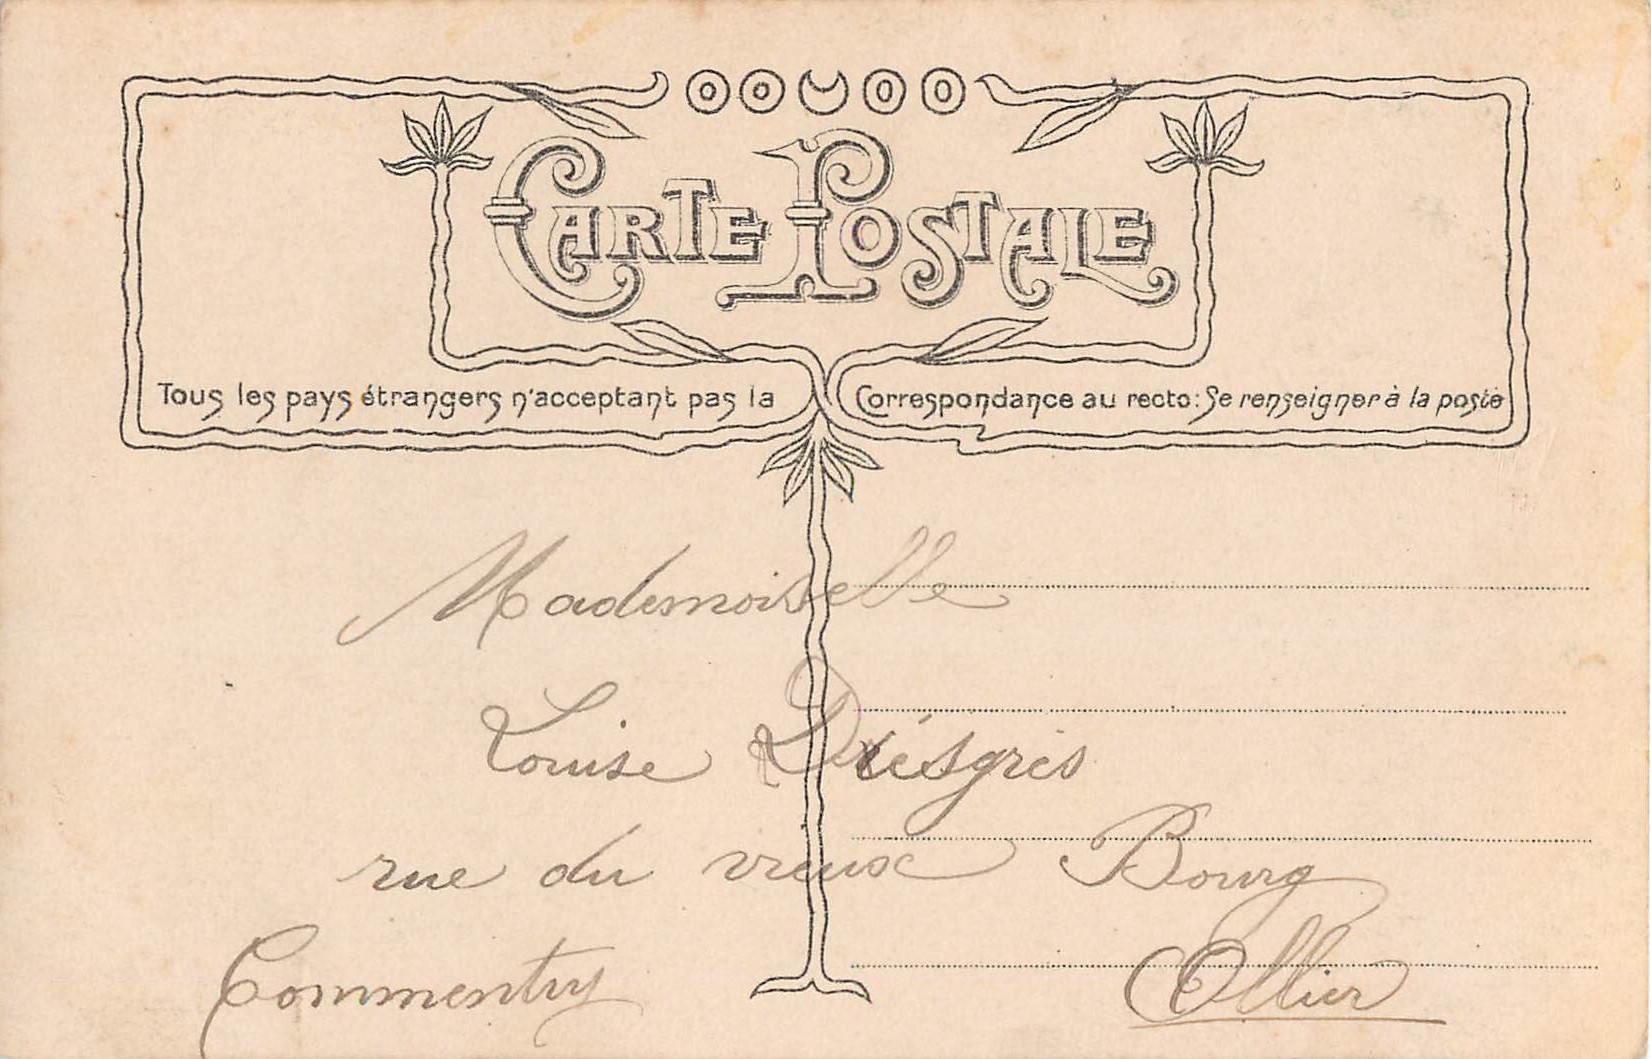 CARTE POSTALE
Tous les pays étrangers n'acceptant pas la Correspondance au recto: Se renseigner à la poste
Mademoiselle
Louise
rue du vieux Bourg
Commentry Allier